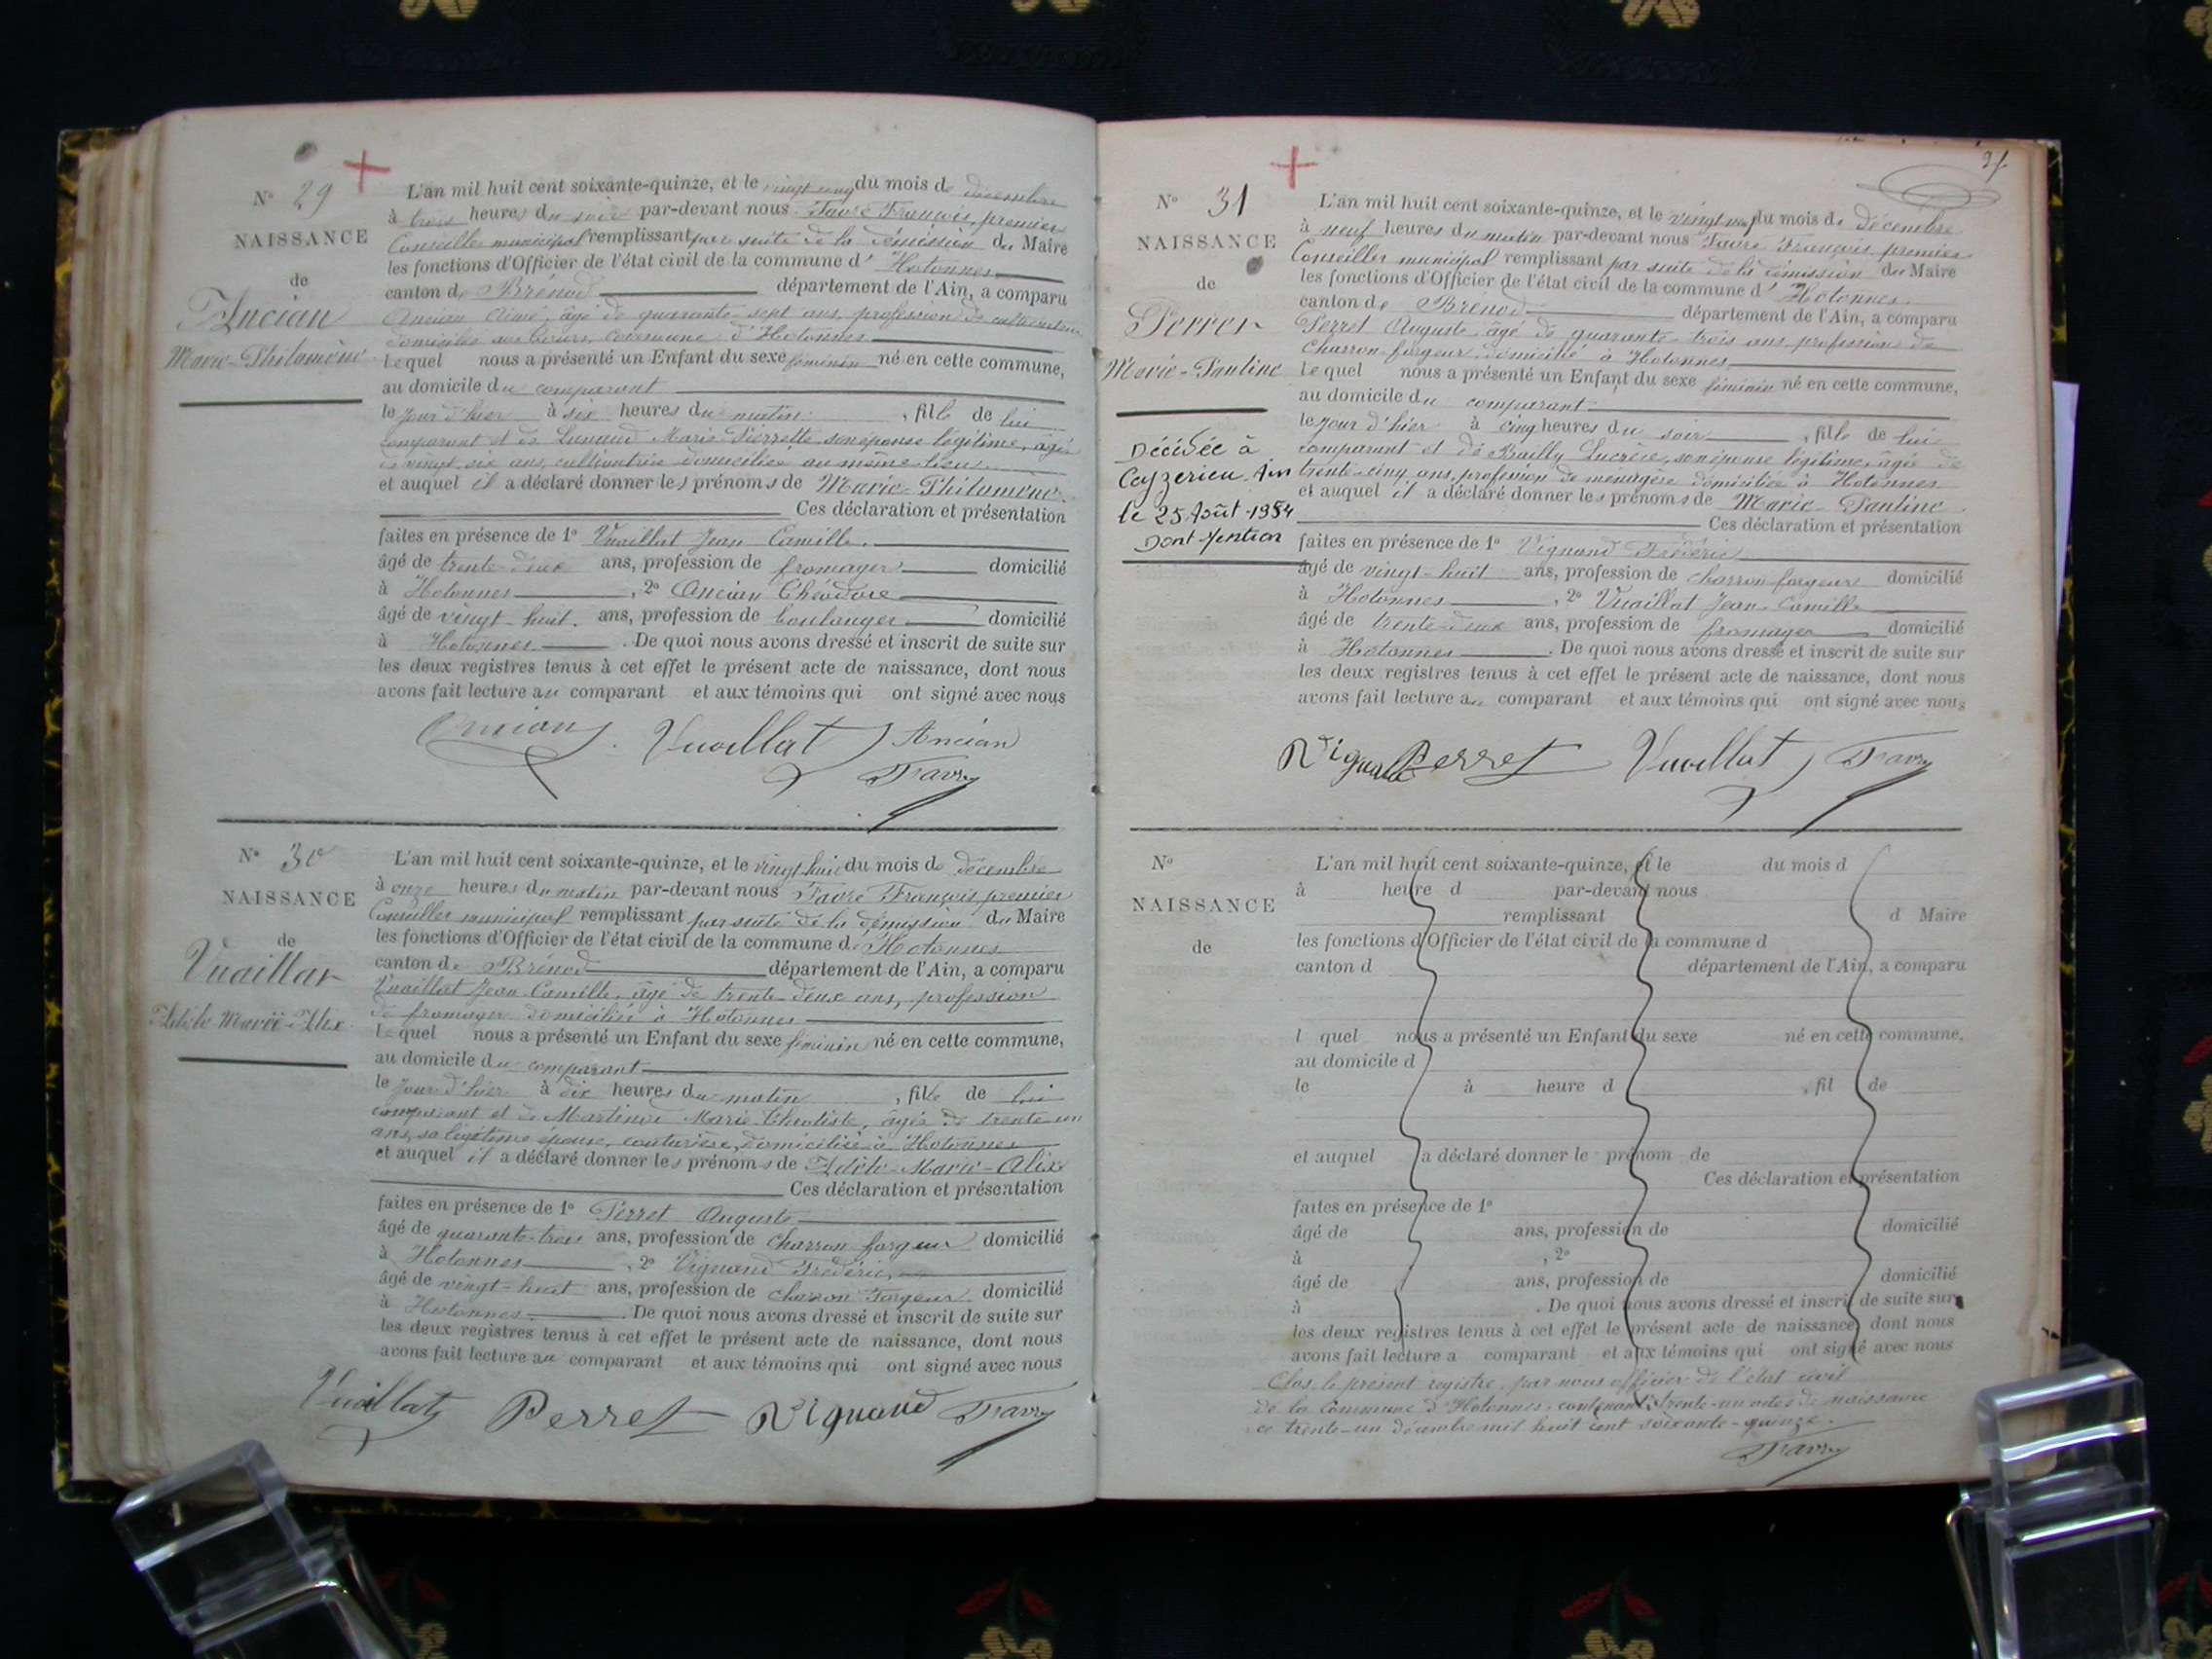 N° 29
NAISSANCE
de
Ancian
Marie-Philomène
L'an mil huit cent soixante-quinze, et le vingt cinq du mois de décembre
à trois heures du soir par-devant nous Favre François, premier
Conseiller municipal remplissant par suite de la démission du Maire
les fonctions d'Officier de l'état civil de la commune d' Hotonnes
canton de Brénod département de l'Ain, a comparu
Ancian Aimé, âgé de quarante-sept ans, profession de cultivateur
domicilié aux commune d'Hotonnes
Lequel nous a présenté un Enfant du sexe féminin né en cette commune,
au domicile du comparant
le jour d'hier à six heures du matin, fille de lui
comparant et de Marie Pierrette son épouse légitime, âgée
de vingt six ans, cultivatrice domiciliée au même lieu
et auquel il a déclaré donner les prénoms de Marie-Philomène.
Ces déclaration et présentation
faites en présence de 1° Vuaillat Jean Camille.
âgé de trente-deux ans, profession de fromager domicilié
à Hotonnes, 2° Ancian Théodore
âgé de vingt-huit. ans, profession de boulanger domicilié
à Hotonnes. De quoi nous avons dressé et inscrit de suite sur
les deux registres tenus à cet effet le présent acte de naissance, dont nous
avons fait lecture au comparant et aux témoins qui ont signé avec nous
Ancian Vuaillat Ancian
Favre
N° 30
NAISSANCE
de
Vuaillat
Adèle Marie-Alix
L'an mil huit cent soixante-quinze, et le vingt huit du mois de décembre
à onze heures du matin par-devant nous Favre François, premier
Conseiller municipal remplissant par suite de la démission du Maire
les fonctions d'Officier de l'état civil de la commune d' Hotonnes
canton de Brénod département de l'Ain, a comparu
Vuaillat Jean Camille, âgé de trente-deux ans, profession
de fromager domicilié à Hotonnes
Lequel nous a présenté un Enfant du sexe féminin né en cette commune,
au domicile du comparant
le jour d'hier à dix heures du matin, fille de lui
comparant et de Marie âgée de trente-un
ans, sa légitime épouse, couturière, domiciliée à Hotonnes
et auquel il a déclaré donner les prénoms de Adèle-Marie-Alix
Ces déclaration et présentation
faites en présence de 1° Perret Auguste
âgé de quarante-trois ans, profession de charron forgeur domicilié
à Hotonnes, 2° Vignand Frédéric,
âgé de vingt-huit ans, profession de charron forgeur domicilié
à Hotonnes. De quoi nous avons dressé et inscrit de suite sur
les deux registres tenus à cet effet le présent acte de naissance, dont nous
avons fait lecture au comparant et aux témoins qui ont signé avec nous
Vuaillat Perret Vignand Favre
31
N° 31
NAISSANCE
de
Perret
Marie-Pauline
Décédée à
Ceyzerieu Ain
le 25 Août 1954
Dont Mention
L'an mil huit cent soixante-quinze, et le vingt neuf du mois de décembre
à neuf heures du matin par-devant nous Favre François premier
Conseiller municipal remplissant par suite de la démission du Maire
les fonctions d'Officier de l'état civil de la commune d' Hotonnes
canton de Brénod département de l'Ain, a comparu
Perret Auguste âgé de quarante-trois ans profession de
charron-forgeur domicilié à Hotonnes
Lequel nous a présenté un Enfant du sexe féminin né en cette commune,
au domicile du comparant
le jour d'hier à cinq heures du soir, fille de lui
comparant et de Bailly Lucrèce, son épouse légitime, âgée de
trente-cinq ans, profession de ménagère domiciliée à Hotonnes
et auquel il a déclaré donner les prénoms de Marie-Pauline.
Ces déclaration et présentation
faites en présence de 1° Vignand Frédéric
âgé de vingt-huit ans, profession de charron forgeur domicilié
à Hotonnes, 2° Vuaillat Jean-Camille
âgé de trente-deux ans, profession de fromager domicilié
à Hotonnes. De quoi nous avons dressé et inscrit de suite sur
les deux registres tenus à cet effet le présent acte de naissance, dont nous
avons fait lecture au comparant et aux témoins qui ont signé avec nous
Vignand Perret Vuaillat Favre
N°
NAISSANCE
de
L'an mil huit cent soixante-quinze, et le du mois d
à heure d par-devant nous
remplissant d Maire
les fonctions d'Officier de l'état civil de la commune d
canton d département de l'Ain, a comparu
l quel nous a présenté un Enfant du sexe né en cette commune,
au domicile d
le à heure d , fil de
et auquel a déclaré donner le prénom de
Ces déclaration et présentation
faites en présence de 1°
âgé de ans, profession de domicilié
à , 2°
âgé de ans, profession de domicilié
à . De quoi nous avons dressé et inscrit de suite sur
les deux registres tenus à cet effet le présent acte de naissance, dont nous
avons fait lecture a comparant et aux témoins qui ont signé avec nous
Clos le présent registre, par nous officier de l'état civil
de la Commune d'Hotonnes, contenant trente-un actes de naissance
ce trente-un décembre mil huit cent soixante-quinze.
Favre